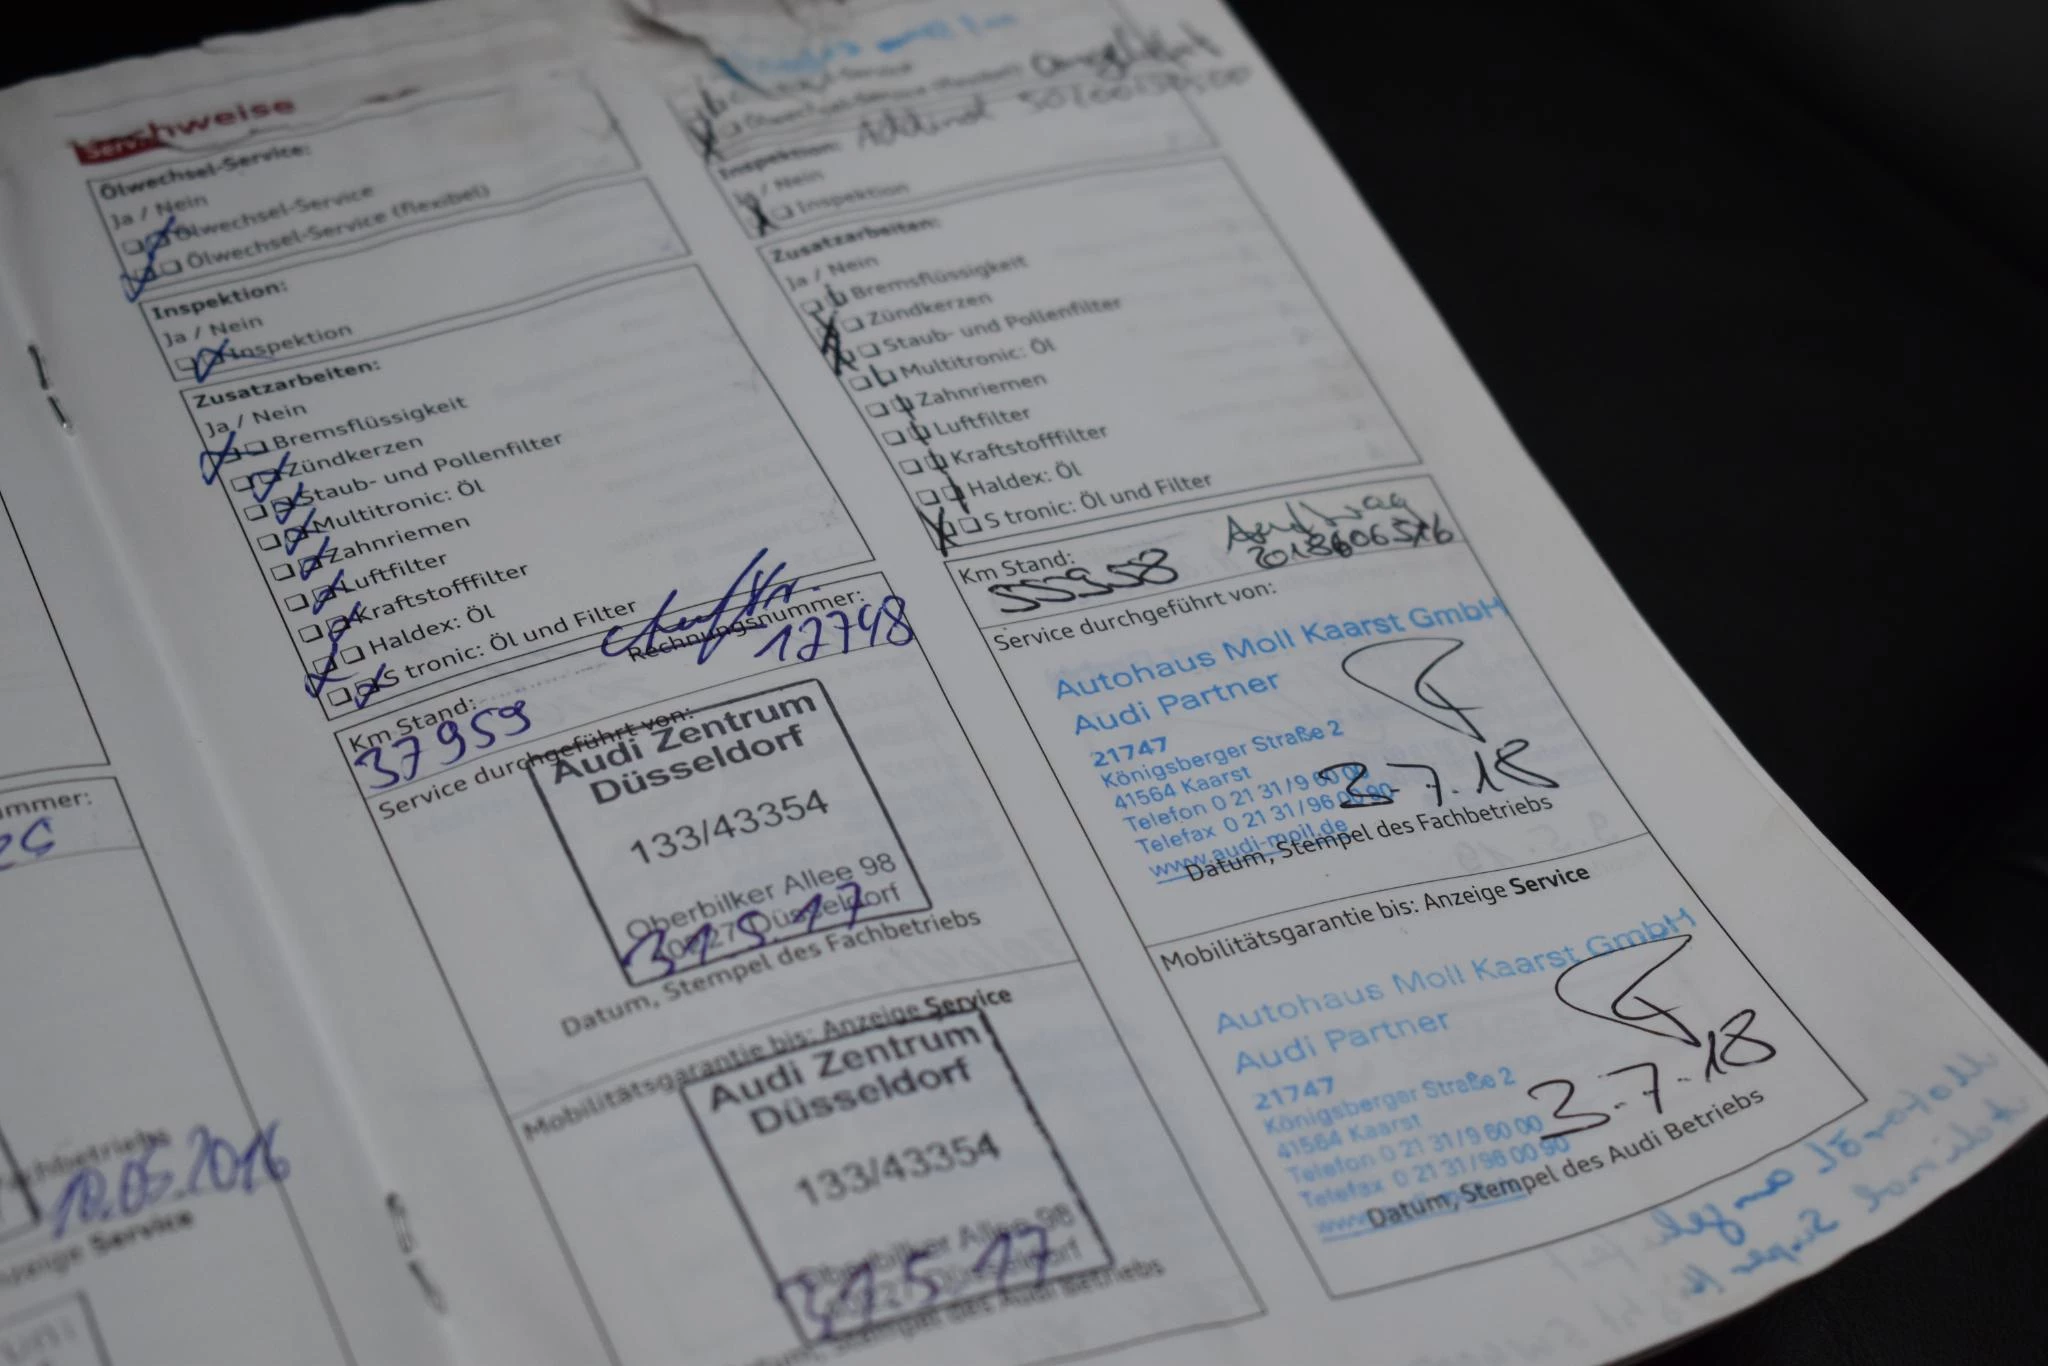 ummer:
achbetriebs
10.05.2016
nzeige Service
Ölwechsel-Service:
Ja / Nein
Ölwechsel-Service
Ölwechsel-Service (flexibel)
Inspektion:
Ja / Nein
Inspektion
Zusatzarbeiten:
Ja / Nein
Bremsflüssigkeit
Zündkerzen
Staub- und Pollenfilter
Multitronic: Öl
Zahnriemen
Luftfilter
Kraftstofffilter
Haldex: Öl
S tronic: Öl und Filter
Km Stand:
37959
Rechnungsnummer:
12748
Service durchgeführt von:
Audi Zentrum
Düsseldorf
133/43354
Oberbilker Allee 98
Düsseldorf
31.5.17
Datum, Stempel des Fachbetriebs
Mobilitätsgarantie bis: Anzeige Service
Audi Zentrum
Düsseldorf
133/43354
Oberbilker Allee 98
Düsseldorf
31.5.17
Stempel des Audi Betriebs
Ölwechsel-Service (flexibel)
Inspektion: Addinol
Ja / Nein
Inspektion
Zusatzarbeiten:
Ja / Nein
Bremsflüssigkeit
Zündkerzen
Staub- und Pollenfilter
Multitronic: Öl
Zahnriemen
Luftfilter
Kraftstofffilter
Haldex: Öl
S tronic: Öl und Filter
Km Stand:
55958
Service durchgeführt von:
Autohaus Moll Kaarst GmbH
Audi Partner
21747
Königsberger Straße 2
41564 Kaarst
Telefon 0 21 31/9 60 00
Telefax 0 21 31/96 00 90
www.audi-moll.de
3.7.18
Datum, Stempel des Fachbetriebs
Mobilitätsgarantie bis: Anzeige Service
Autohaus Moll Kaarst GmbH
Audi Partner
21747
Königsberger Straße 2
41564 Kaarst
Telefon 0 21 31/9 60 00
Telefax 0 21 31/96 00 90
3.7.18
Datum, Stempel des Audi Betriebs